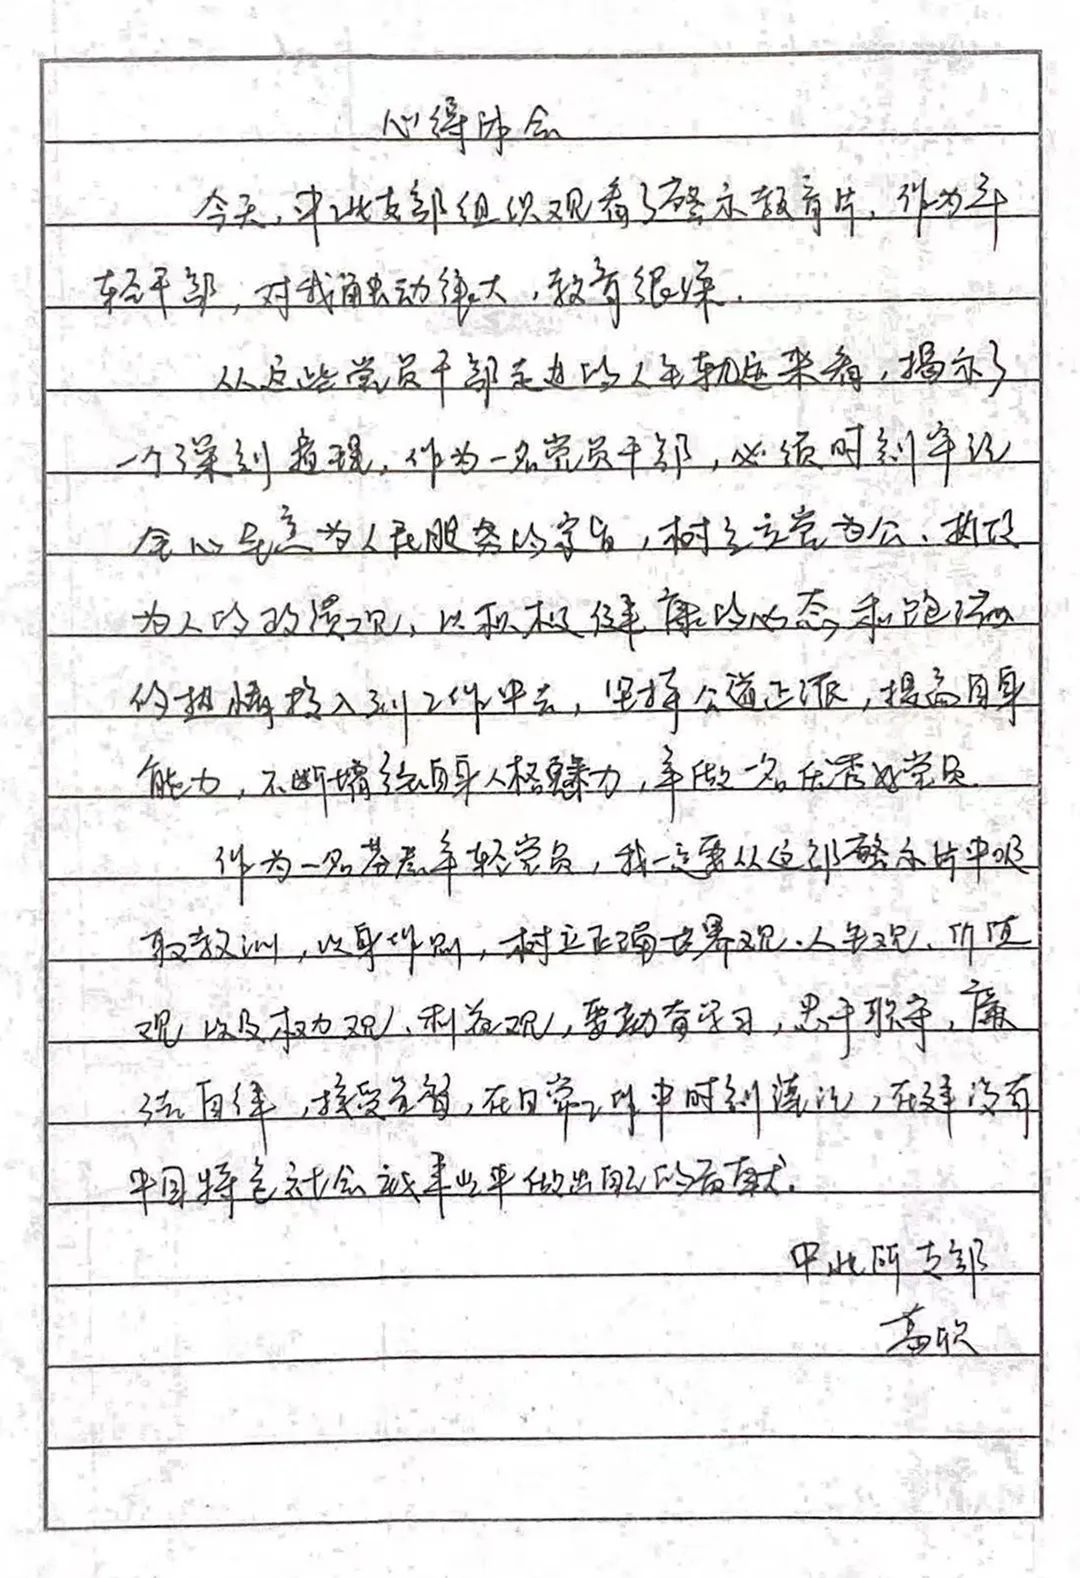 心得体会
今天,中北支部组织观看了警示教育片,作为年
轻干部,对我触动很大,教育很深.
从这些党员干部走过的人生轨迹来看,揭示了
一个深刻道理,作为一名党员干部,必须时刻牢记
全心全意为人民服务的宗旨,树立立党为公、执政
为人的政绩观,以积极健康的心态和饱满
的热情投入到工作中去,坚持公道正派,提高自身
能力,不断增强自身人格魅力,争做一名优秀好党员.
作为一名基层年轻党员,我一定要从这部警示片中吸
取教训,以身作则,树立正确世界观、人生观、价值
观以及权力观、利益观,要勤奋学习,忠于职守,廉
洁自律,接受监督,在日常工作中时刻谨记,在建设有
中国特色社会主义事业中做出自己的贡献.
中北所支部
高欣